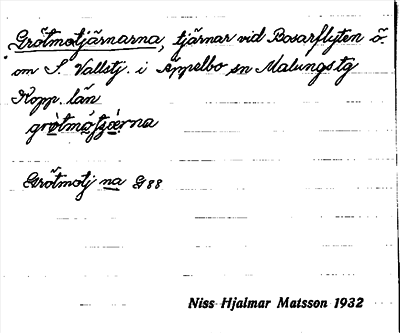 Grötmotjärnarna, tjärnar vid Bosarflyten ö.
om S. Vallstj. i Äppelbo sn Malungs tg
Kopp. län
grötmåtjärna
Grötmotj na G 88
Niss Hjalmar Matsson 1932